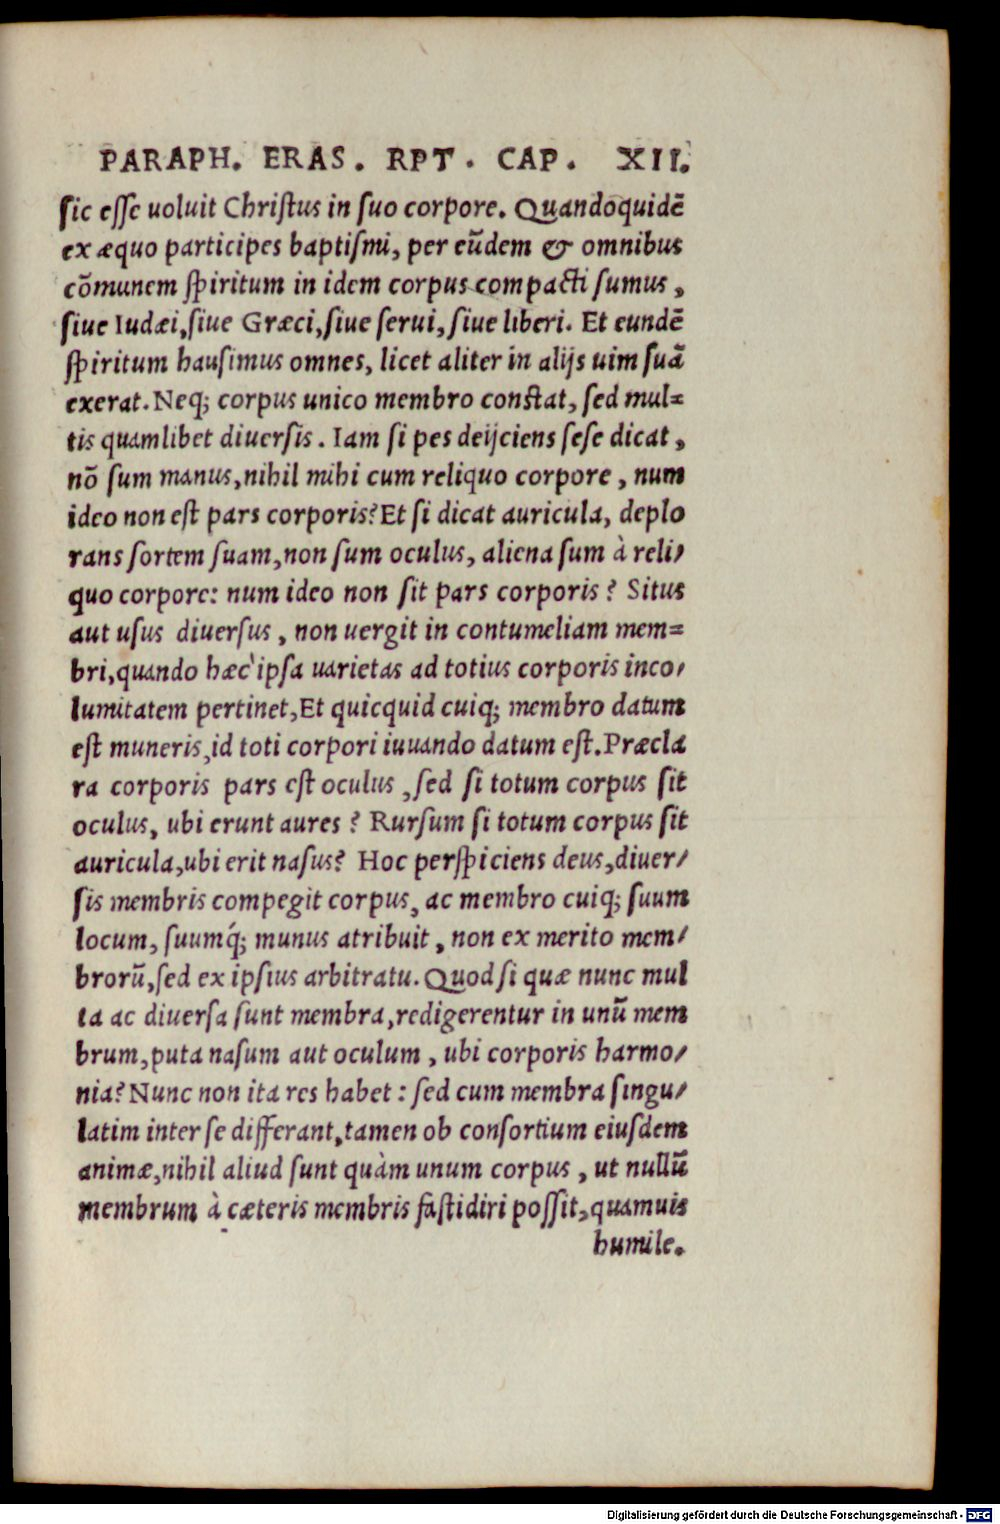 PARAPH. ERAS. RPT. CAP. XII.
sic esse uoluit Christus in suo corpore. Quandoquidē
ex æquo participes baptismi, per eūdem & omnibus
cōmunem spiritum in idem corpus compacti sumus,
siue Iudæi, siue Græci, siue serui, siue liberi. Et eundē
spiritum hausimus omnes, licet aliter in alijs uim suā
exerat. Neq; corpus unico membro constat, sed mul=
tis quamlibet diuersis. Iam si pes deijciens sese dicat,
nō sum manus, nihil mihi cum reliquo corpore, num
ideo non est pars corporis? Et si dicat auricula, deplo
rans sortem suam, non sum oculus, aliena sum à reli/
quo corpore: num ideo non sit pars corporis? Situs
aut usus diuersus, non uergit in contumeliam mem=
bri, quando hæc ipsa uarietas ad totius corporis inco/
lumitatem pertinet, Et quicquid cuiq; membro datum
est muneris, id toti corpori iuuando datum est. Præcla
ra corporis pars est oculus, sed si totum corpus sit
oculus, ubi erunt aures? Rursum si totum corpus sit
auricula, ubi erit nasus? Hoc perspiciens deus, diuer/
sis membris compegit corpus, ac membro cuiq; suum
locum, suumq́; munus atribuit, non ex merito mem/
brorū, sed ex ipsius arbitratu. Quod si quæ nunc mul
ta ac diuersa sunt membra, redigerentur in unū mem
brum, puta nasum aut oculum, ubi corporis harmo/
nia? Nunc non ita res habet: sed cum membra singu/
latim inter se differant, tamen ob consortium eiusdem
animæ, nihil aliud sunt quàm unum corpus, ut nullū
membrum à cæteris membris fastidiri possit, quamuis
humile.
Digitalisierung gefördert durch die Deutsche Forschungsgemeinschaft - DFG